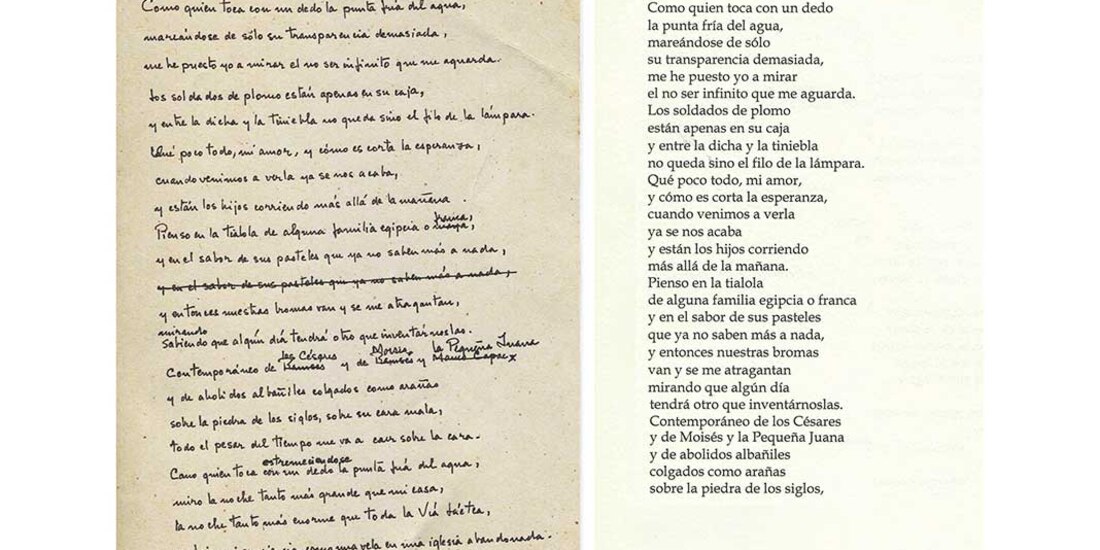 Como quien toca con un dedo la punta fría del agua,
mareándose de sólo su transparencia demasiada,
me he puesto yo a mirar el no ser infinito que me aguarda.
Los soldados de plomo están apenas en su caja,
y entre la dicha y la tiniebla no queda sino el filo de la lámpara.
Qué poco todo, mi amor, y cómo es corta la esperanza,
cuando venimos a verla ya se nos acaba,
y están los hijos corriendo más allá de la mañana.
franca,
Pienso en la tialola de alguna familia egipcia o maya,
y en el sabor de sus pasteles que ya no saben más a nada,
y en el sabor de sus pasteles que ya no saben más a nada,
y entonces nuestras bromas van y se me atragantan,
mirando
sabiendo que algún día tendrá otro que inventárnoslas.
los Césares Moisés la Pequeña Juana
Contemporáneo de Ramsés y de Ramsés y Manco Capac
y de abolidos albañiles colgados como arañas
sobre la piedra de los siglos, sobre su cara mala,
todo el pesar del tiempo me va a caer sobre la cara.
estremeciéndose
Como quien toca con un dedo la punta fría del agua,
miro la noche tanto más grande que mi casa,
la noche tanto más enorme que toda la Vía Láctea,
como una vela en una iglesia abandonada.
Como quien toca con un dedo
la punta fría del agua,
mareándose de sólo
su transparencia demasiada,
me he puesto yo a mirar
el no ser infinito que me aguarda.
Los soldados de plomo
están apenas en su caja
y entre la dicha y la tiniebla
no queda sino el filo de la lámpara.
Qué poco todo, mi amor,
y cómo es corta la esperanza,
cuando venimos a verla
ya se nos acaba
y están los hijos corriendo
más allá de la mañana.
Pienso en la tialola
de alguna familia egipcia o franca
y en el sabor de sus pasteles
que ya no saben más a nada,
y entonces nuestras bromas
van y se me atragantan
mirando que algún día
tendrá otro que inventárnoslas.
Contemporáneo de los Césares
y de Moisés y la Pequeña Juana
y de abolidos albañiles
colgados como arañas
sobre la piedra de los siglos,